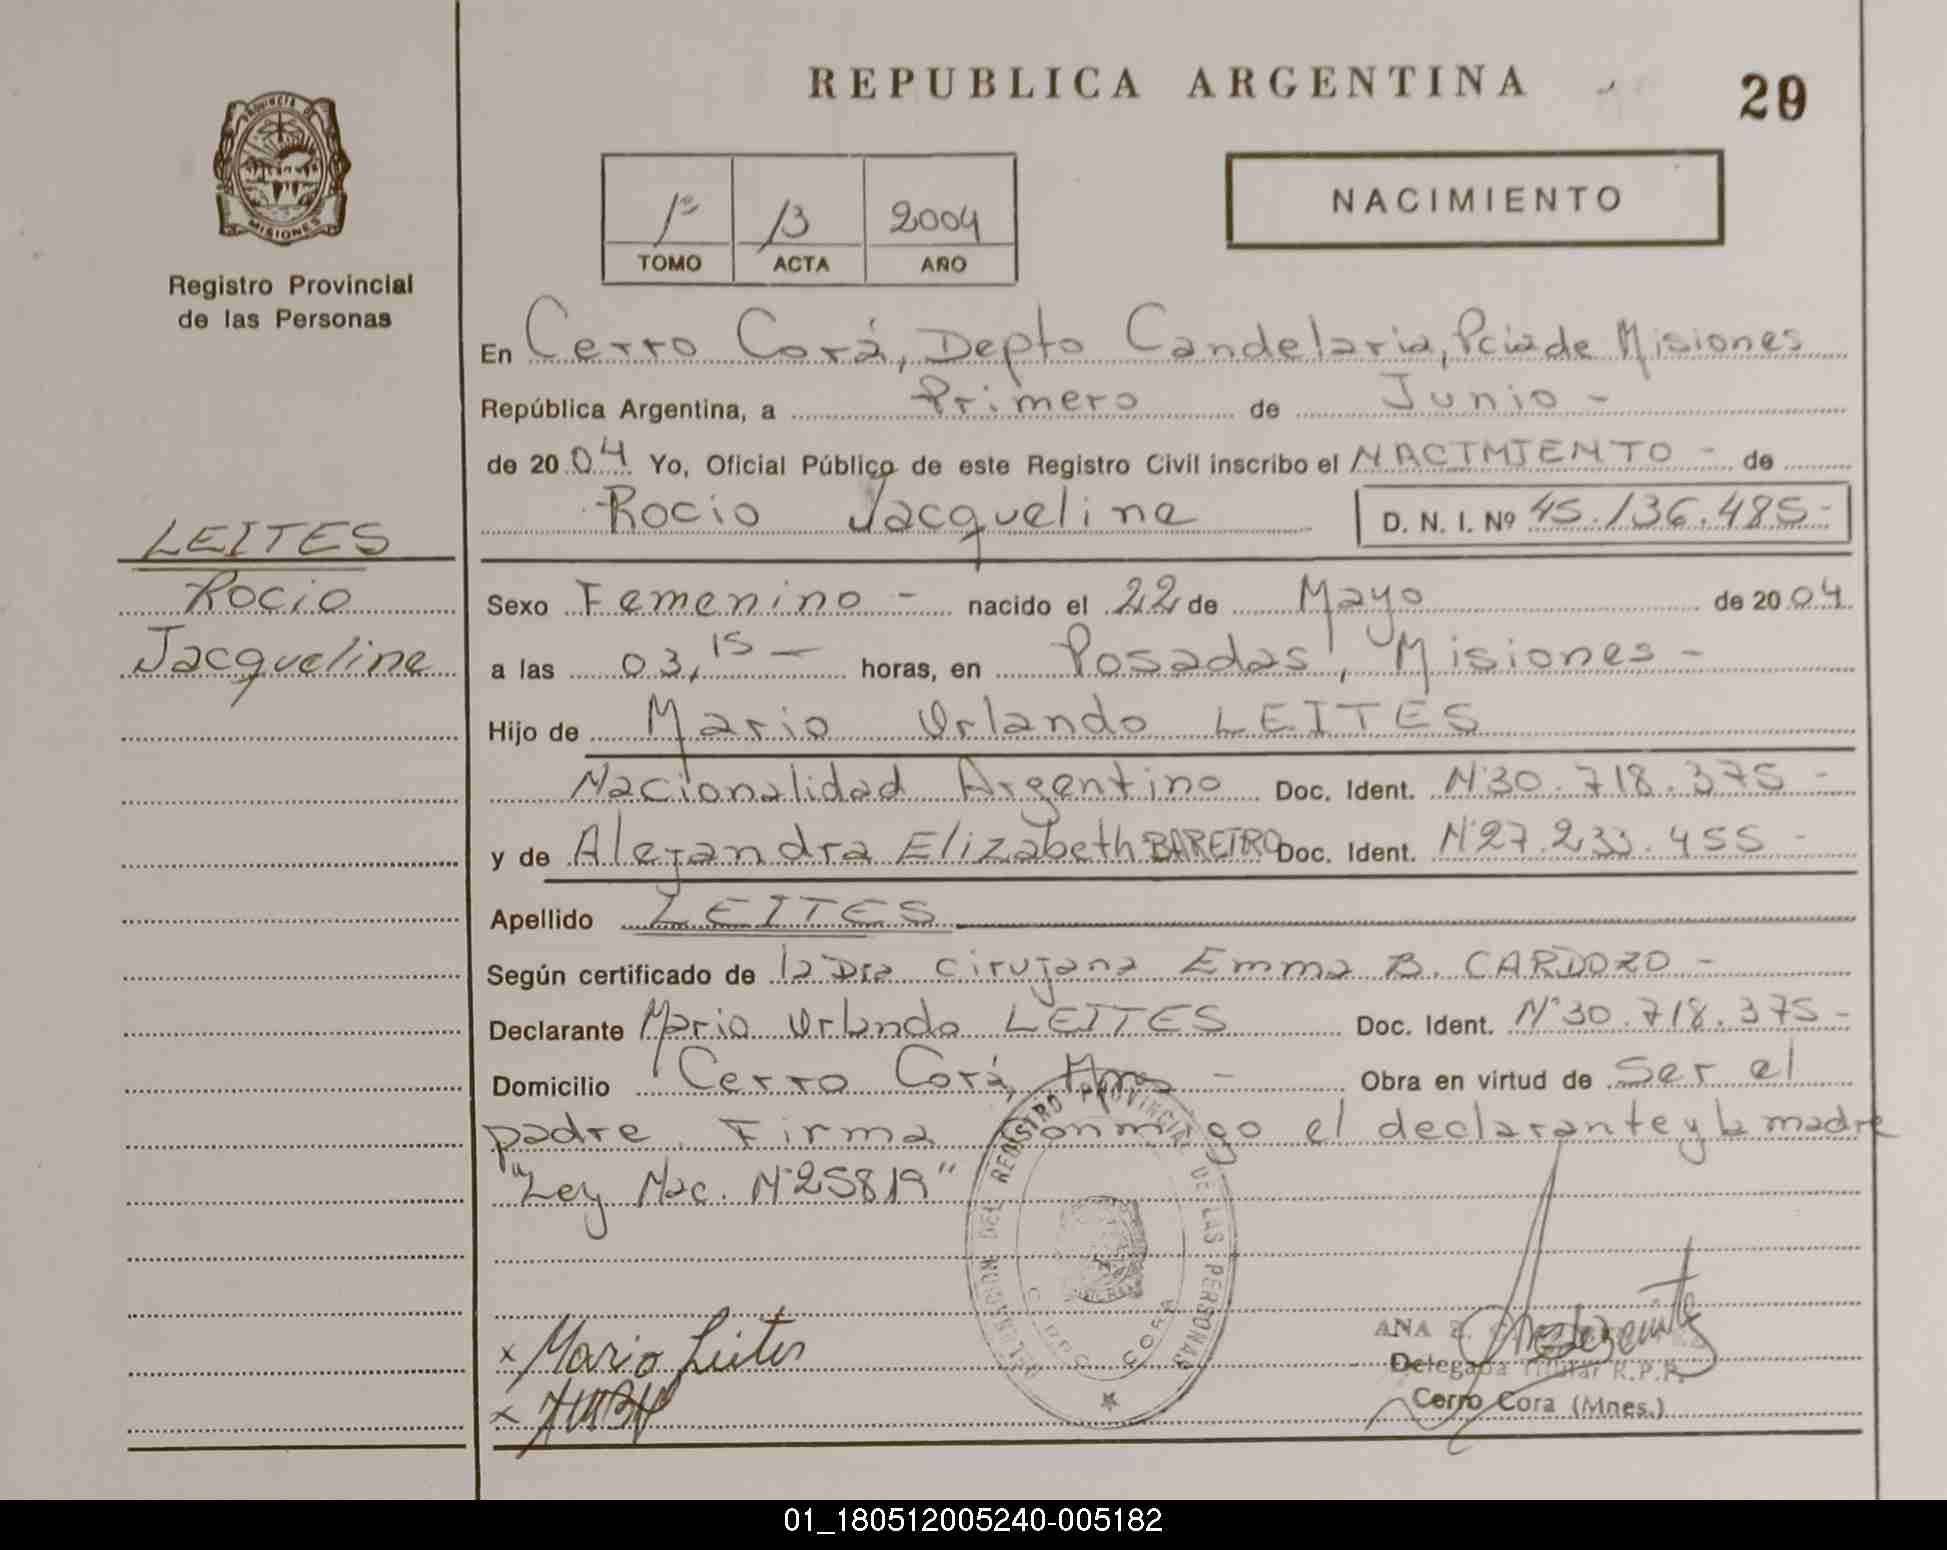 REPUBLICA ARGENTINA
29
PROVINCIA DE MISIONES
Registro Provincial
de las Personas
1º 13 2004
TOMO ACTA AÑO
NACIMIENTO
En Cerro Corá, Depto Candelaria, Pcia de Misiones
República Argentina, a Primero de Junio -
de 2004 Yo, Oficial Público de este Registro Civil inscribo el NACIMIENTO - de
Rocio Jacqueline D. N. I. Nº 45.136.485-
LEITES
Rocio
Jacqueline
Sexo Femenino - nacido el 22 de Mayo de 2004
a las 03,15 - horas, en Posadas, Misiones -
Hijo de Mario Orlando LEITES
Nacionalidad Argentino Doc. Ident. Nº30.718.375-
y de Alejandra Elizabeth BAREIRO Doc. Ident. Nº27.233.455-
Apellido LEITES
Según certificado de la Dra cirujana Emma B. CARDOZO -
Declarante Mario Orlando LEITES Doc. Ident. Nº30.718.375-
Domicilio Cerro Corá, Mnes - Obra en virtud de Ser el
padre. Firma conmigo el declarante y la madre
"Ley Nac. Nº25819"
DELEGACION DEL REGISTRO PROVINCIAL DE LAS PERSONAS
CERRO CORA
x Mario Leites
x
ANA
Delegada Titular R.P.P.
Cerro Cora (Mnes.)
01_180512005240-005182